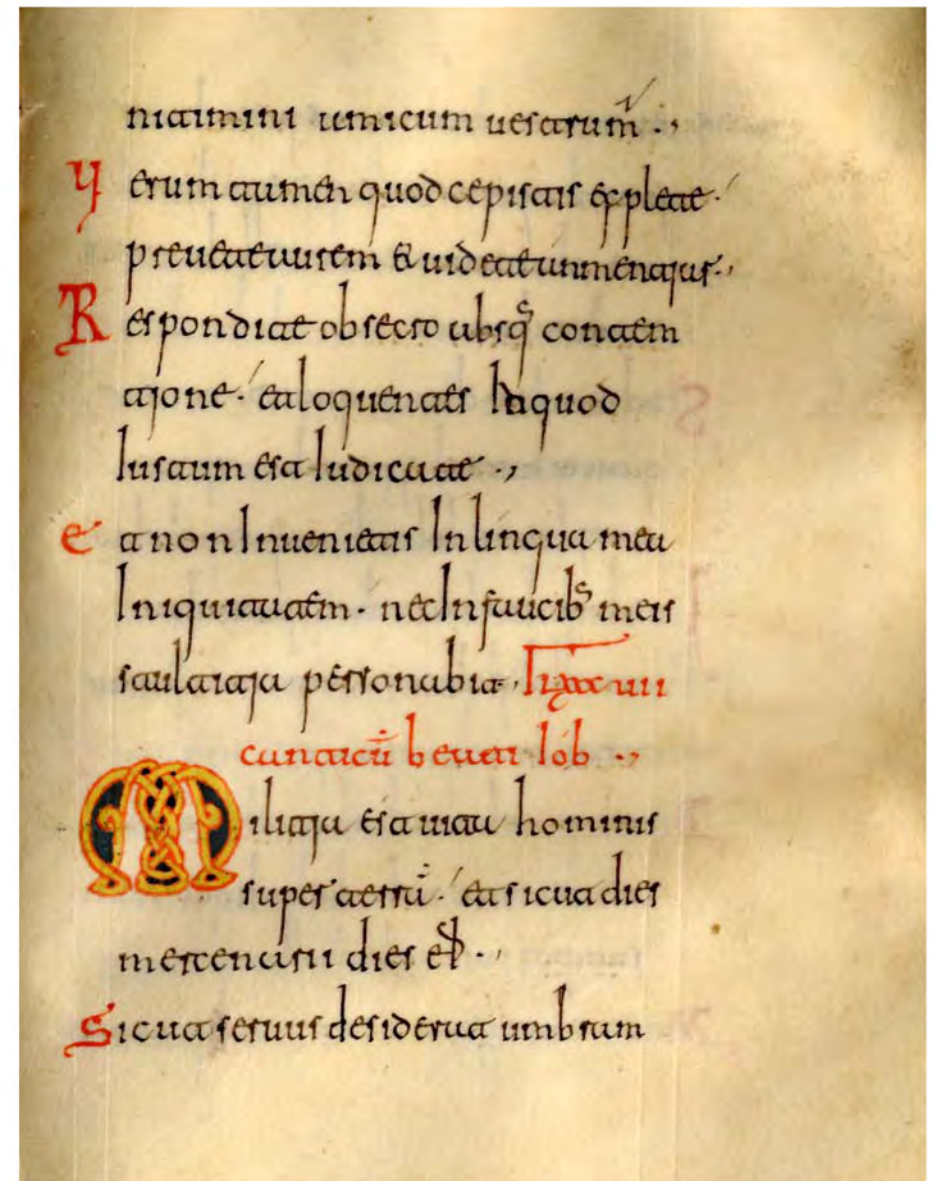 nitimini amicum uestrum .,
Uerum tamen quod cepistis explete.
preuete aurem & uidete an mentiar.,
Respondite obsecro absq; conten
tione. et loquentes Id quod
Iustum est Iudicate .,
Et non Inuenietis In lingua mea
Iniquitatem. nec In faucib; meis
stultitia personabit.
canticū beati Iob .,
Militia est uita hominis
super terrā. et sicut dies
mercenarii dies
Sicut seruus desiderat umbram